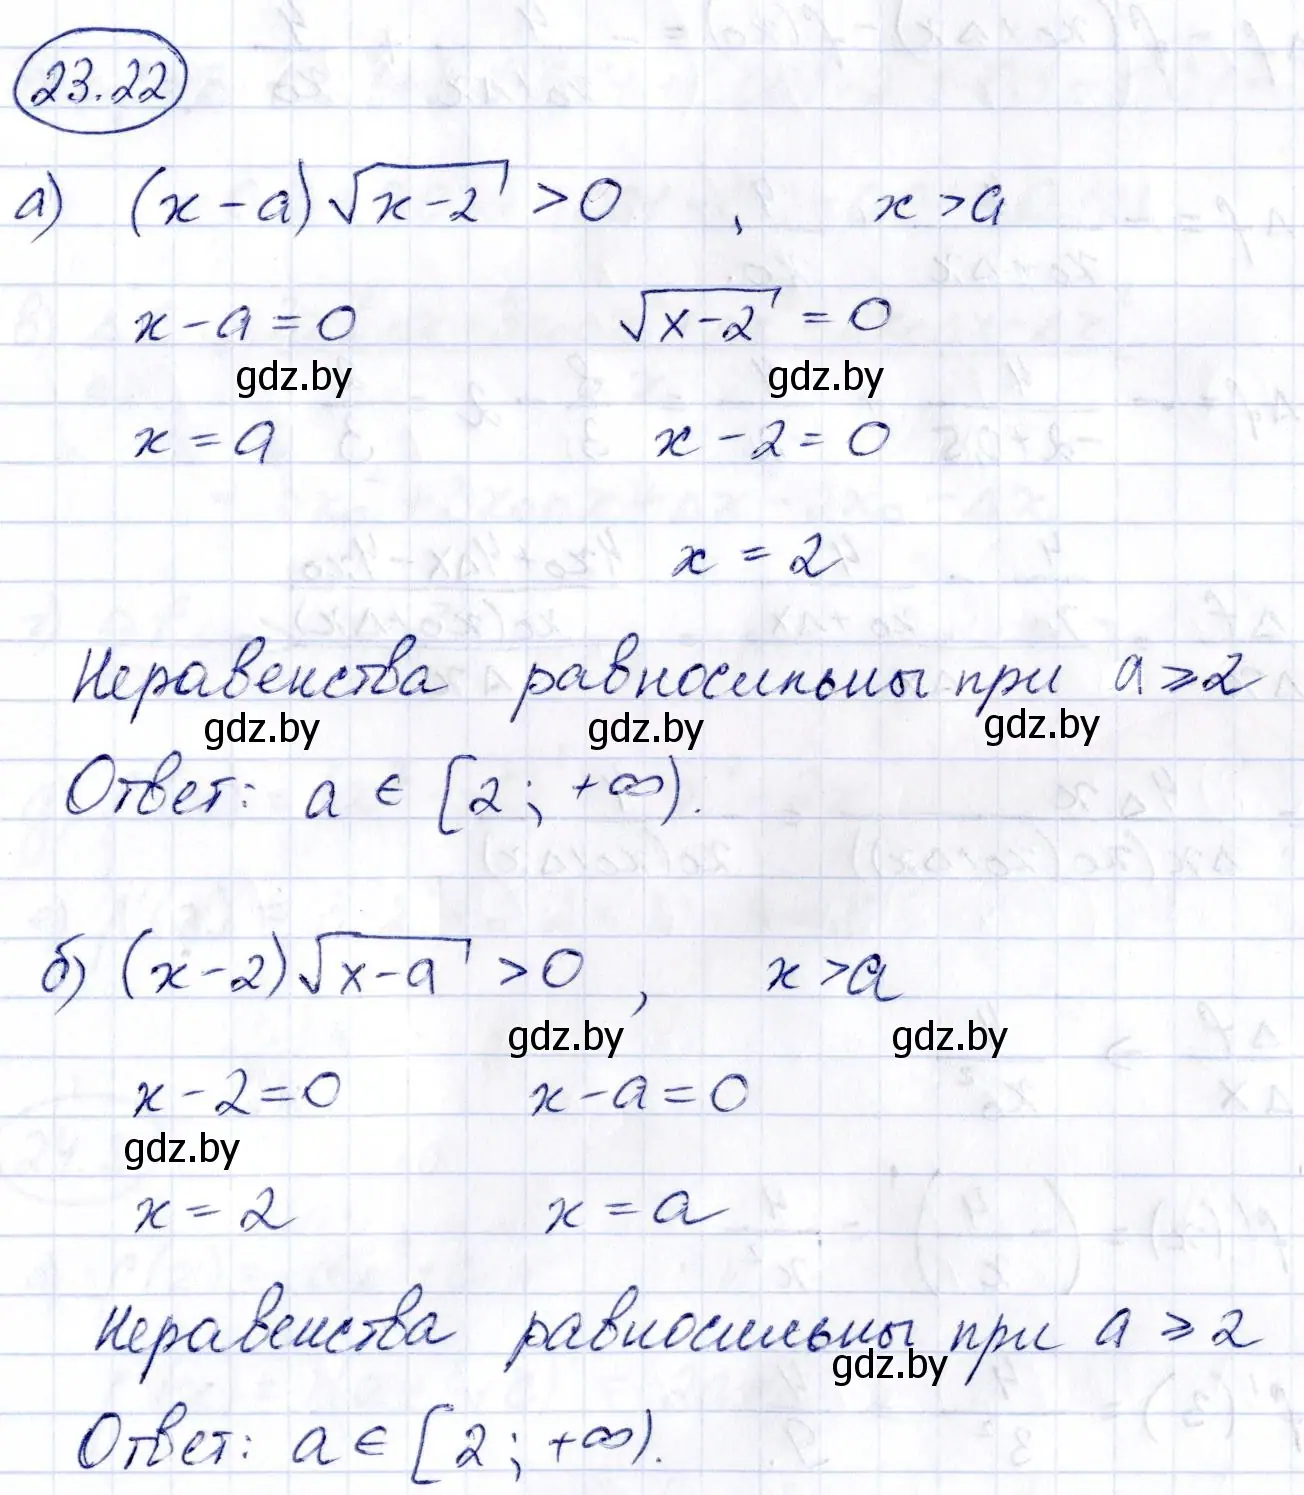 23.22
а) (x-a)√(x-2) >0 , x>a
x-a=0 √(x-2) =0
gdz.by gdz.by
x=a x-2=0
x=2
Неравенства равносильны при a⩾2
gdz.by gdz.by gdz.by
Ответ: a∈[2; +∞).
б) (x-2)√(x-a) >0 , x>a
gdz.by gdz.by
x-2=0 x-a=0
gdz.by
x=2 x=a
Неравенства равносильны при a⩾2
gdz.by
Ответ: a∈[2; +∞).